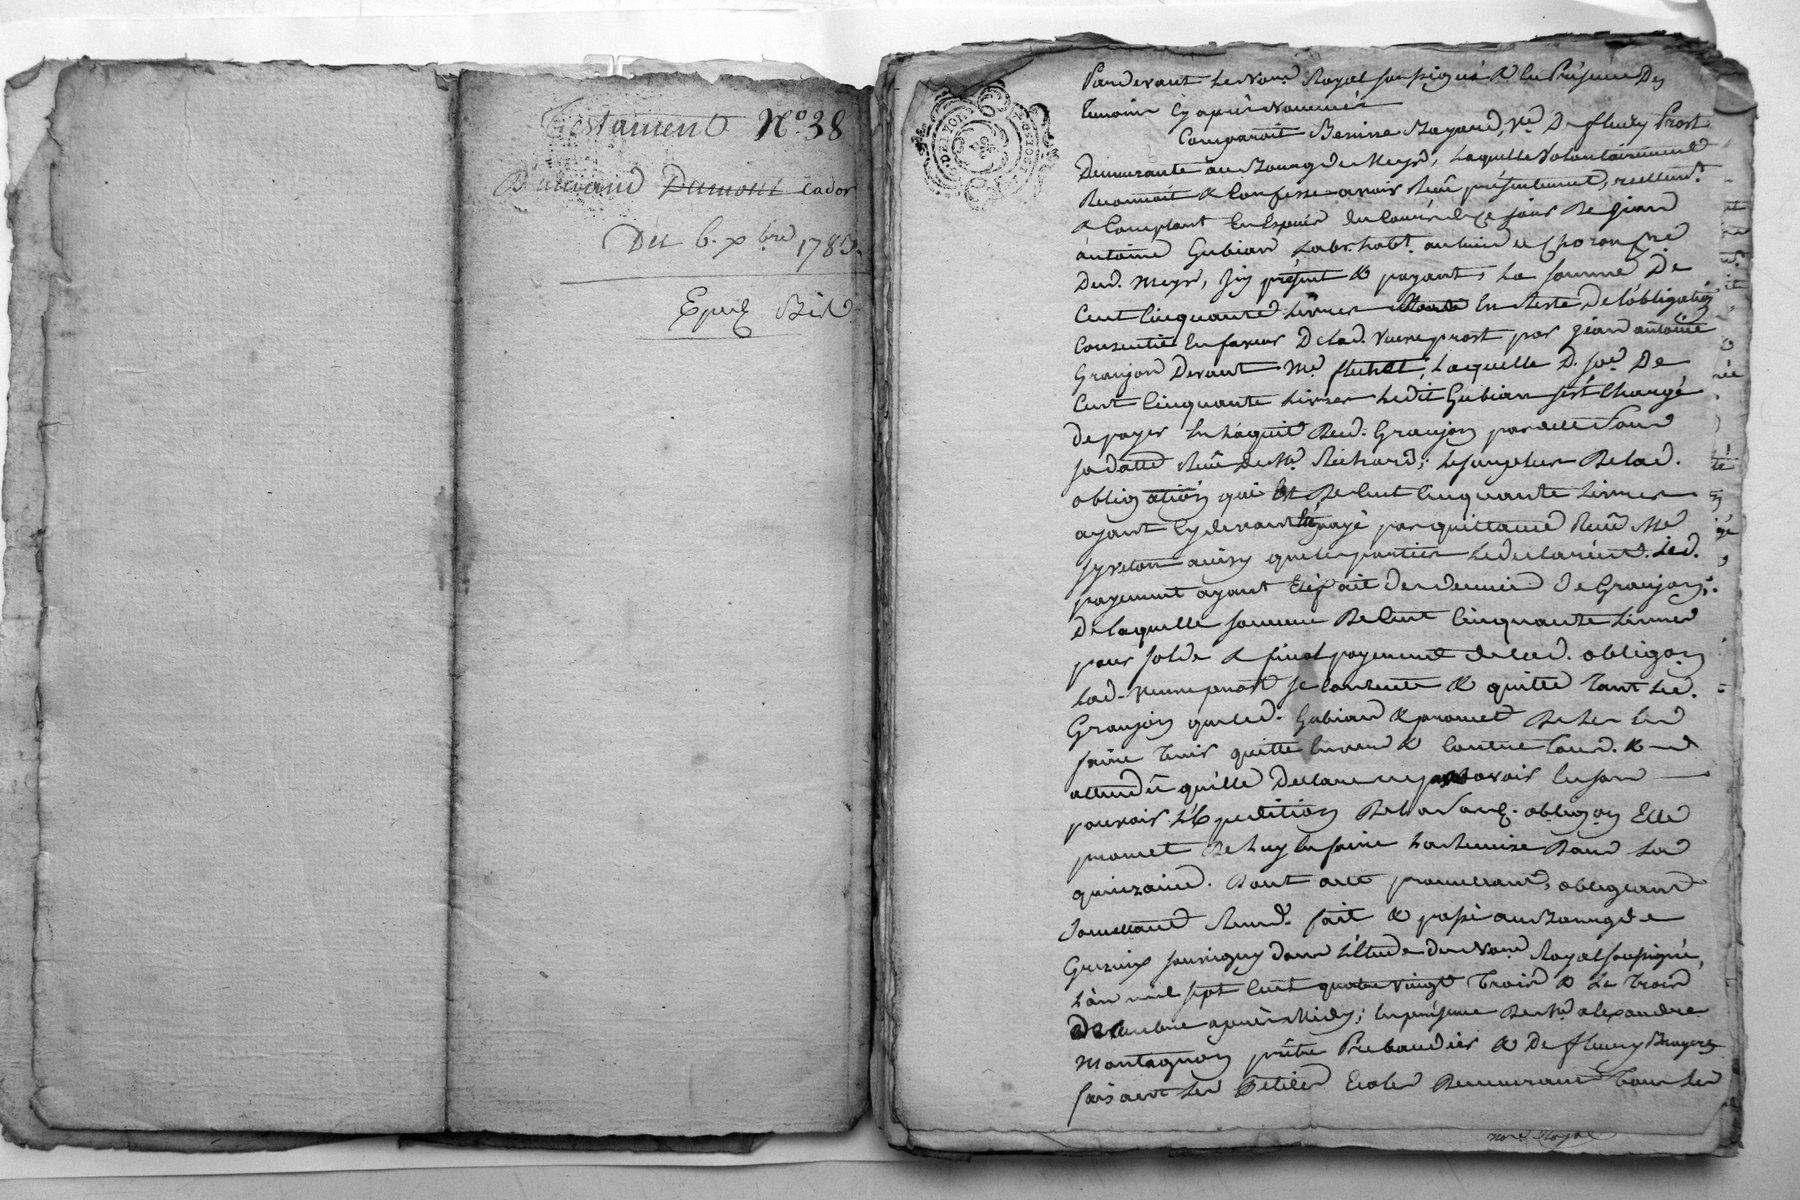 Testament N.o 38
Dumont Cador
Du 6. xbre 1783.
Expié
Pardevant Le Nore Royal soussigné & En Présence Des
Temoins Cy après Nommés
Comparait Benine Bayard, Ve De fleury Prost
Demeurante au Bourg de Meys, Laquelle Volontairement
Reconnoit & Confesse avoir Reçu présentement, réellemt
& Comptant En Espèces du Cours de ce jour De Jean
antoine Gubian Labr. habt. au lieu de
Dud. Meys, Icy présent & payant, La somme De
Cent Cinquante Livres En Reste, de L'obligation
Consentie En faveur De lad. Veuve prost par jean antoine
Granjon Devant Me Laquelle D. soe. De
Cent Cinquante Livres Ledit Gubian s'est Chargé
De payer En L'aquit Dud. Granjon par acte sous
sa datte Reçu Me Richard; Le surplus De lad.
obligation qui Est De Cent Cinquante Livres
ayant Cy devant Eté payé par quittance Reçue Me
ainsy que les parties Le declarent. Led.
payement ayant Eté fait des deniers de Granjon;
De Laquelle somme De Cent Cinquante Livres
pour solde & final payement de lad. obligaon
Lad. Veuve prost se Contente & quitte Tant Led.
Granjon que led. Gubian & promet De les En
faire Tenir quitte Envers & Contre Tous. &
attendu qu'elle Declare ne pas avoir En son
pouvoir L'Expedition De la susd. obligaon Elle
promet De Luy En faire La Remise Dans La
quinzaine. Dont acte promettant, obligeant
soumettant Renont. fait & passé au Bourg de
Grezieu souvigny dans L'Etude du Nore Royal soussigné,
L'an mil sept Cent quatre vingt Trois & Le Trois
Decembre après Midy; En présence De Me alexandre
Montagnon prêtre Prebandier & De fleury Bruyere
faisant Les Petites Ecoles Demeurant Tous Les